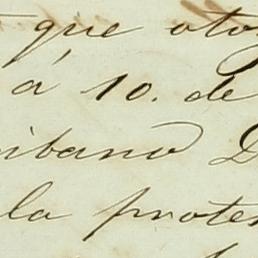 que otor
á 10. de
ibano D
la protes